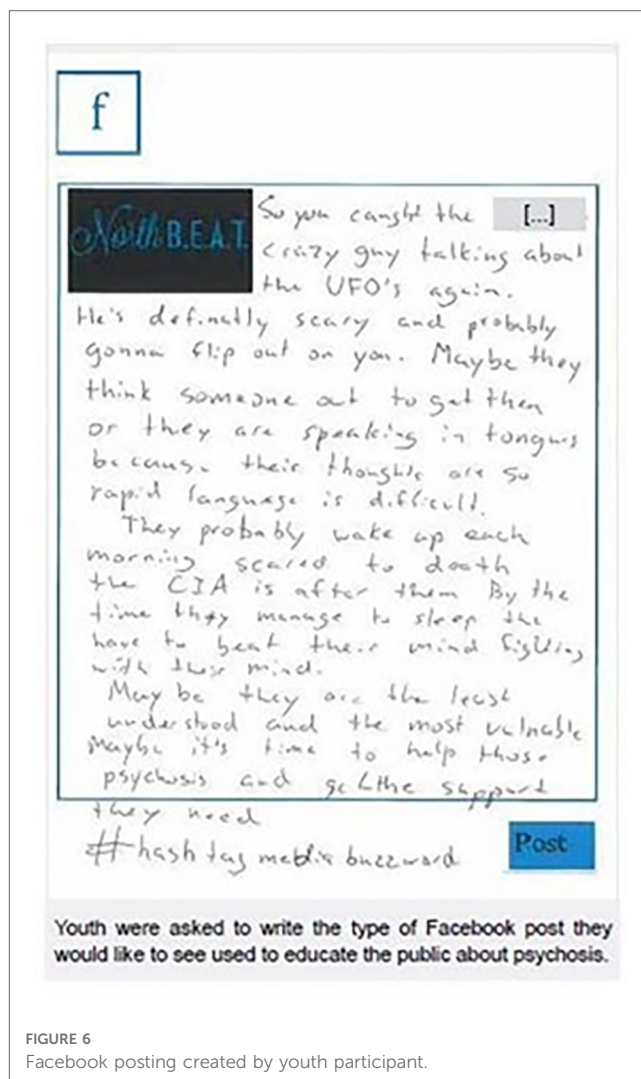 f
North B.E.A.T.
So you caught the [...]
crazy guy talking about
the UFO's again.
He's definatly scary and probably
gonna flip out on you. Maybe they
think someone out to get then
or they are speaking in tongues
because their thoughts are so
rapid language is difficult.
They probably wake up each
morning scared to death
the CIA is after them By the
time they manage to sleep the
have to beat their mind fighting
with their mind.
Maybe they are the least
understood and the most valnable
Maybe it's time to help those
psychosis and get the support
they need
#hash tag media buzzword
Post
Youth were asked to write the type of Facebook post they
would like to see used to educate the public about psychosis.
FIGURE 6
Facebook posting created by youth participant.